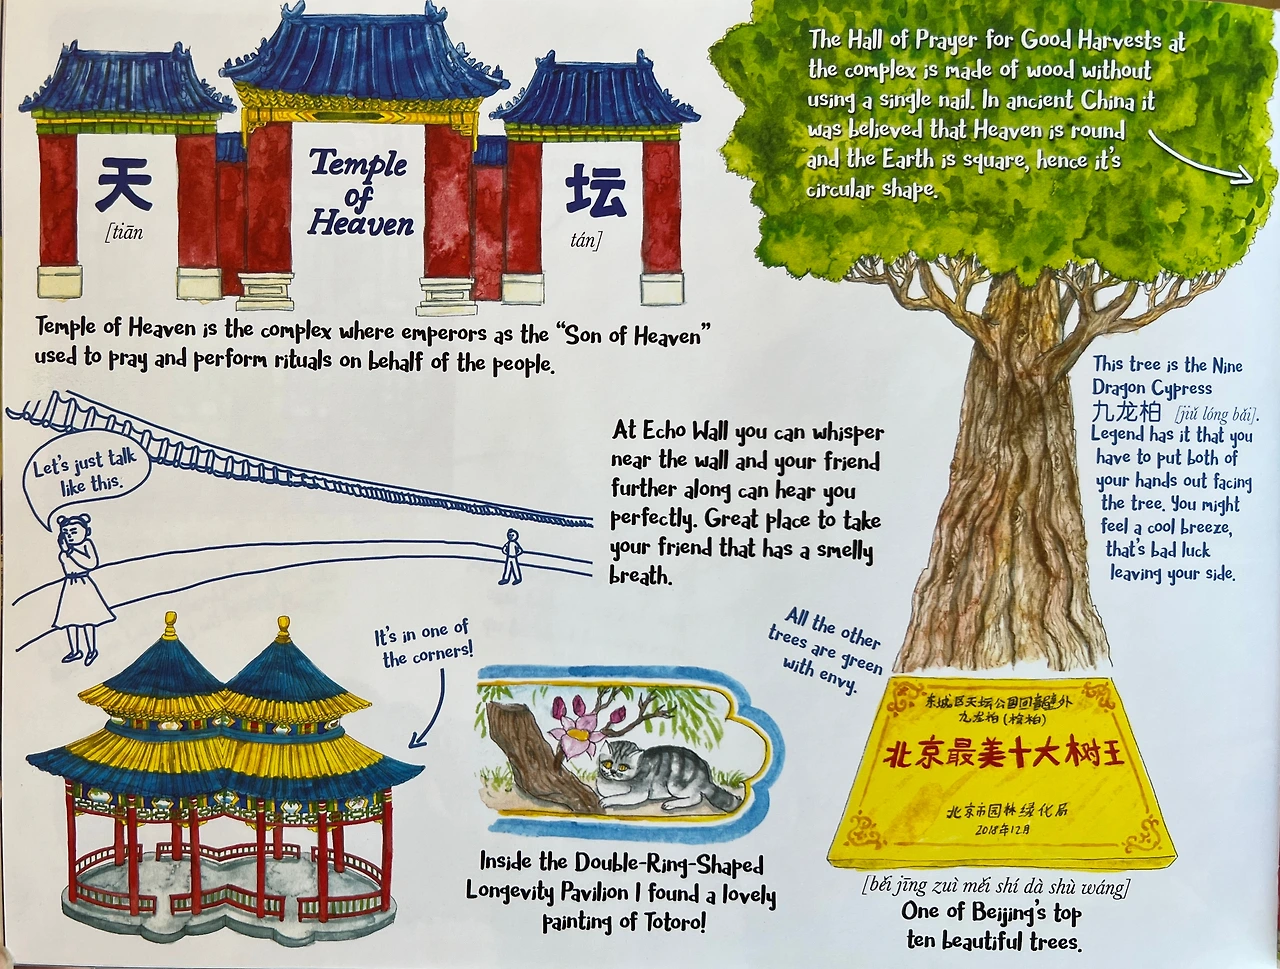 天
[tiān
Temple
of
Heaven
坛
tán]
Temple of Heaven is the complex where emperors as the “Son of Heaven”
used to pray and perform rituals on behalf of the people.
The Hall of Prayer for Good Harvests at
the complex is made of wood without
using a single nail. In ancient China it
was believed that Heaven is round
and the Earth is square, hence it's
circular shape.
This tree is the Nine
Dragon Cypress
九龙柏 [jiǔ lóng bǎi].
Legend has it that you
have to put both of
your hands out facing
the tree. You might
feel a cool breeze,
that's bad luck
leaving your side.
Let's just talk
like this.
At Echo Wall you can whisper
near the wall and your friend
further along can hear you
perfectly. Great place to take
your friend that has a smelly
breath.
All the other
trees are green
with envy.
It's in one of
the corners!
Inside the Double-Ring-Shaped
Longevity Pavilion I found a lovely
painting of Totoro!
东城区天坛公园回音壁外
九龙柏(桧柏)
北京最美十大树王
北京市园林绿化局
2018年12月
[běi jīng zuì měi shí dà shù wáng]
One of Beijing's top
ten beautiful trees.